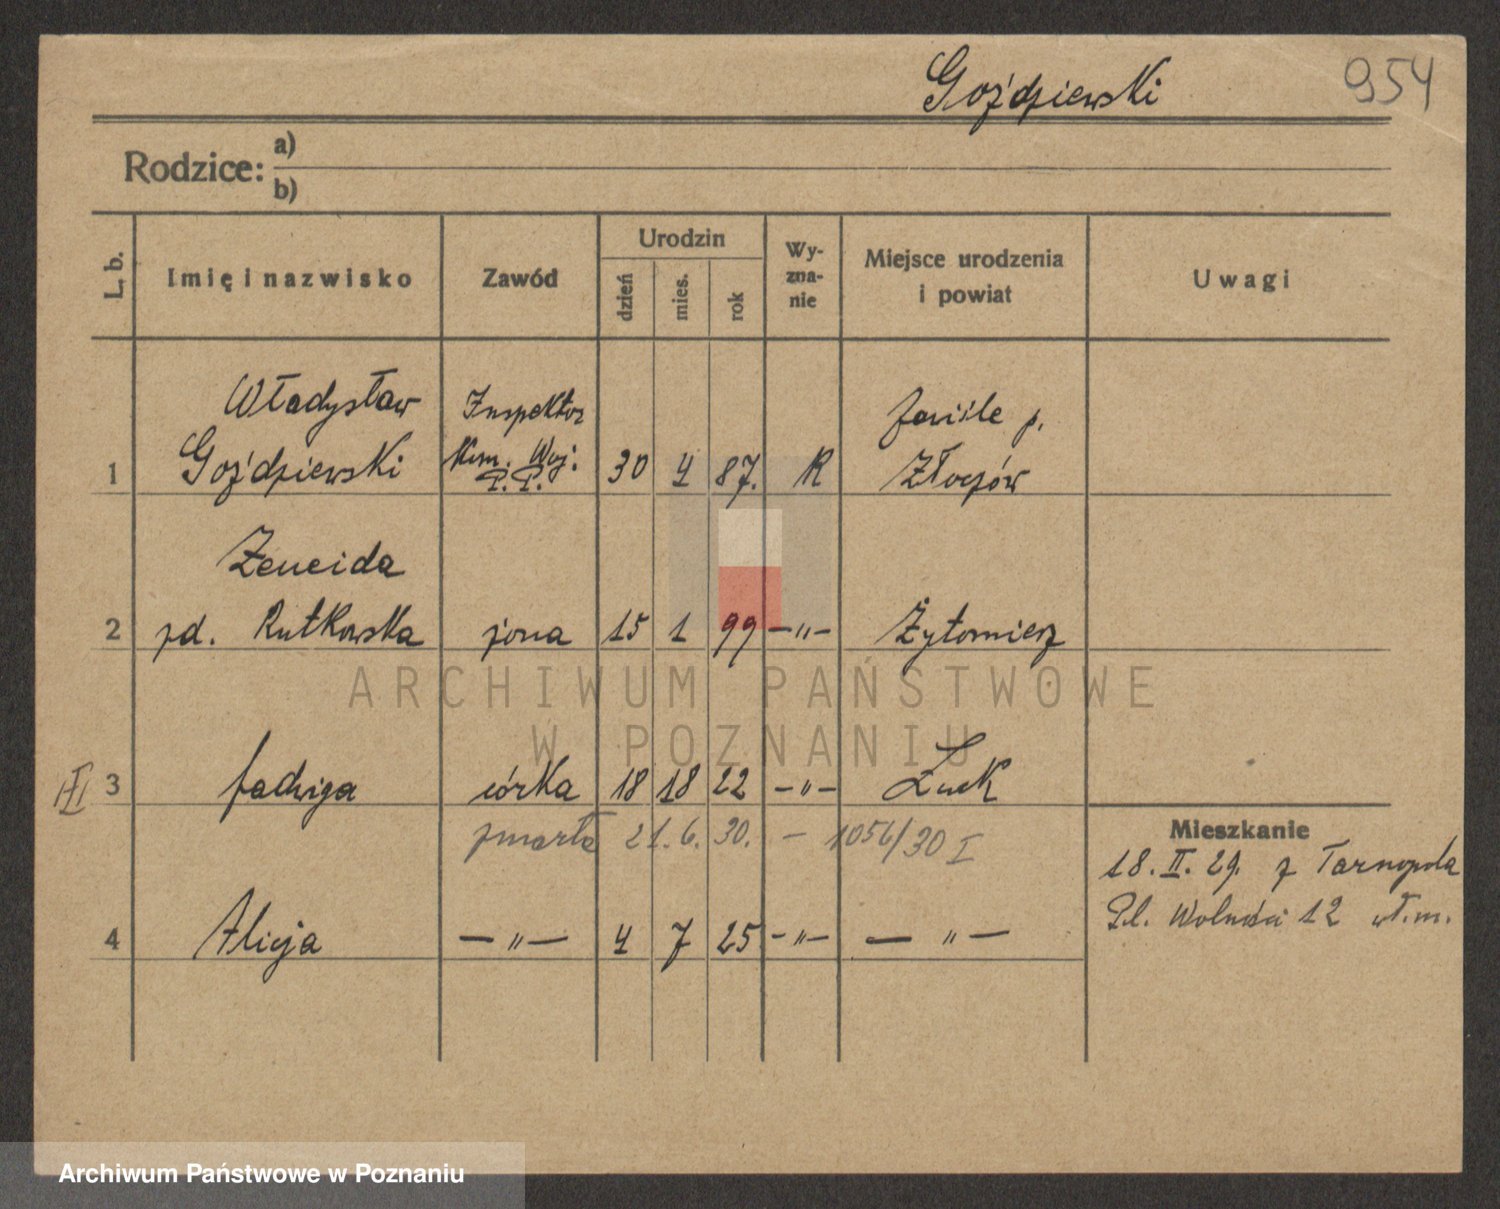 Goździewski 954
Rodzice: a)
b)
L. b. Imię i nazwisko Zawód Urodzin dzień mies. rok Wy-zna-nie Miejsce urodzenia i powiat Uwagi
Władysław Inspektor p.
1 Goździewski Kom. Woj. P.P. 30 4 87. R Złoczów
Zeneida
2 zd. Rutkowska żona 15 1 99 —"— Żytomierz
3 Jadwiga córka 18 18 22 —"— Łuck
zmarła 21.6.30. — 1056/30 I
Mieszkanie
18.II.29. z Tarnopola
Pl. Wolności 12 wł.m.
4 Alicja —"— 4 7 25 —"— —"—
ARCHIWUM PAŃSTWOWE
W POZNANIU
Archiwum Państwowe w Poznaniu